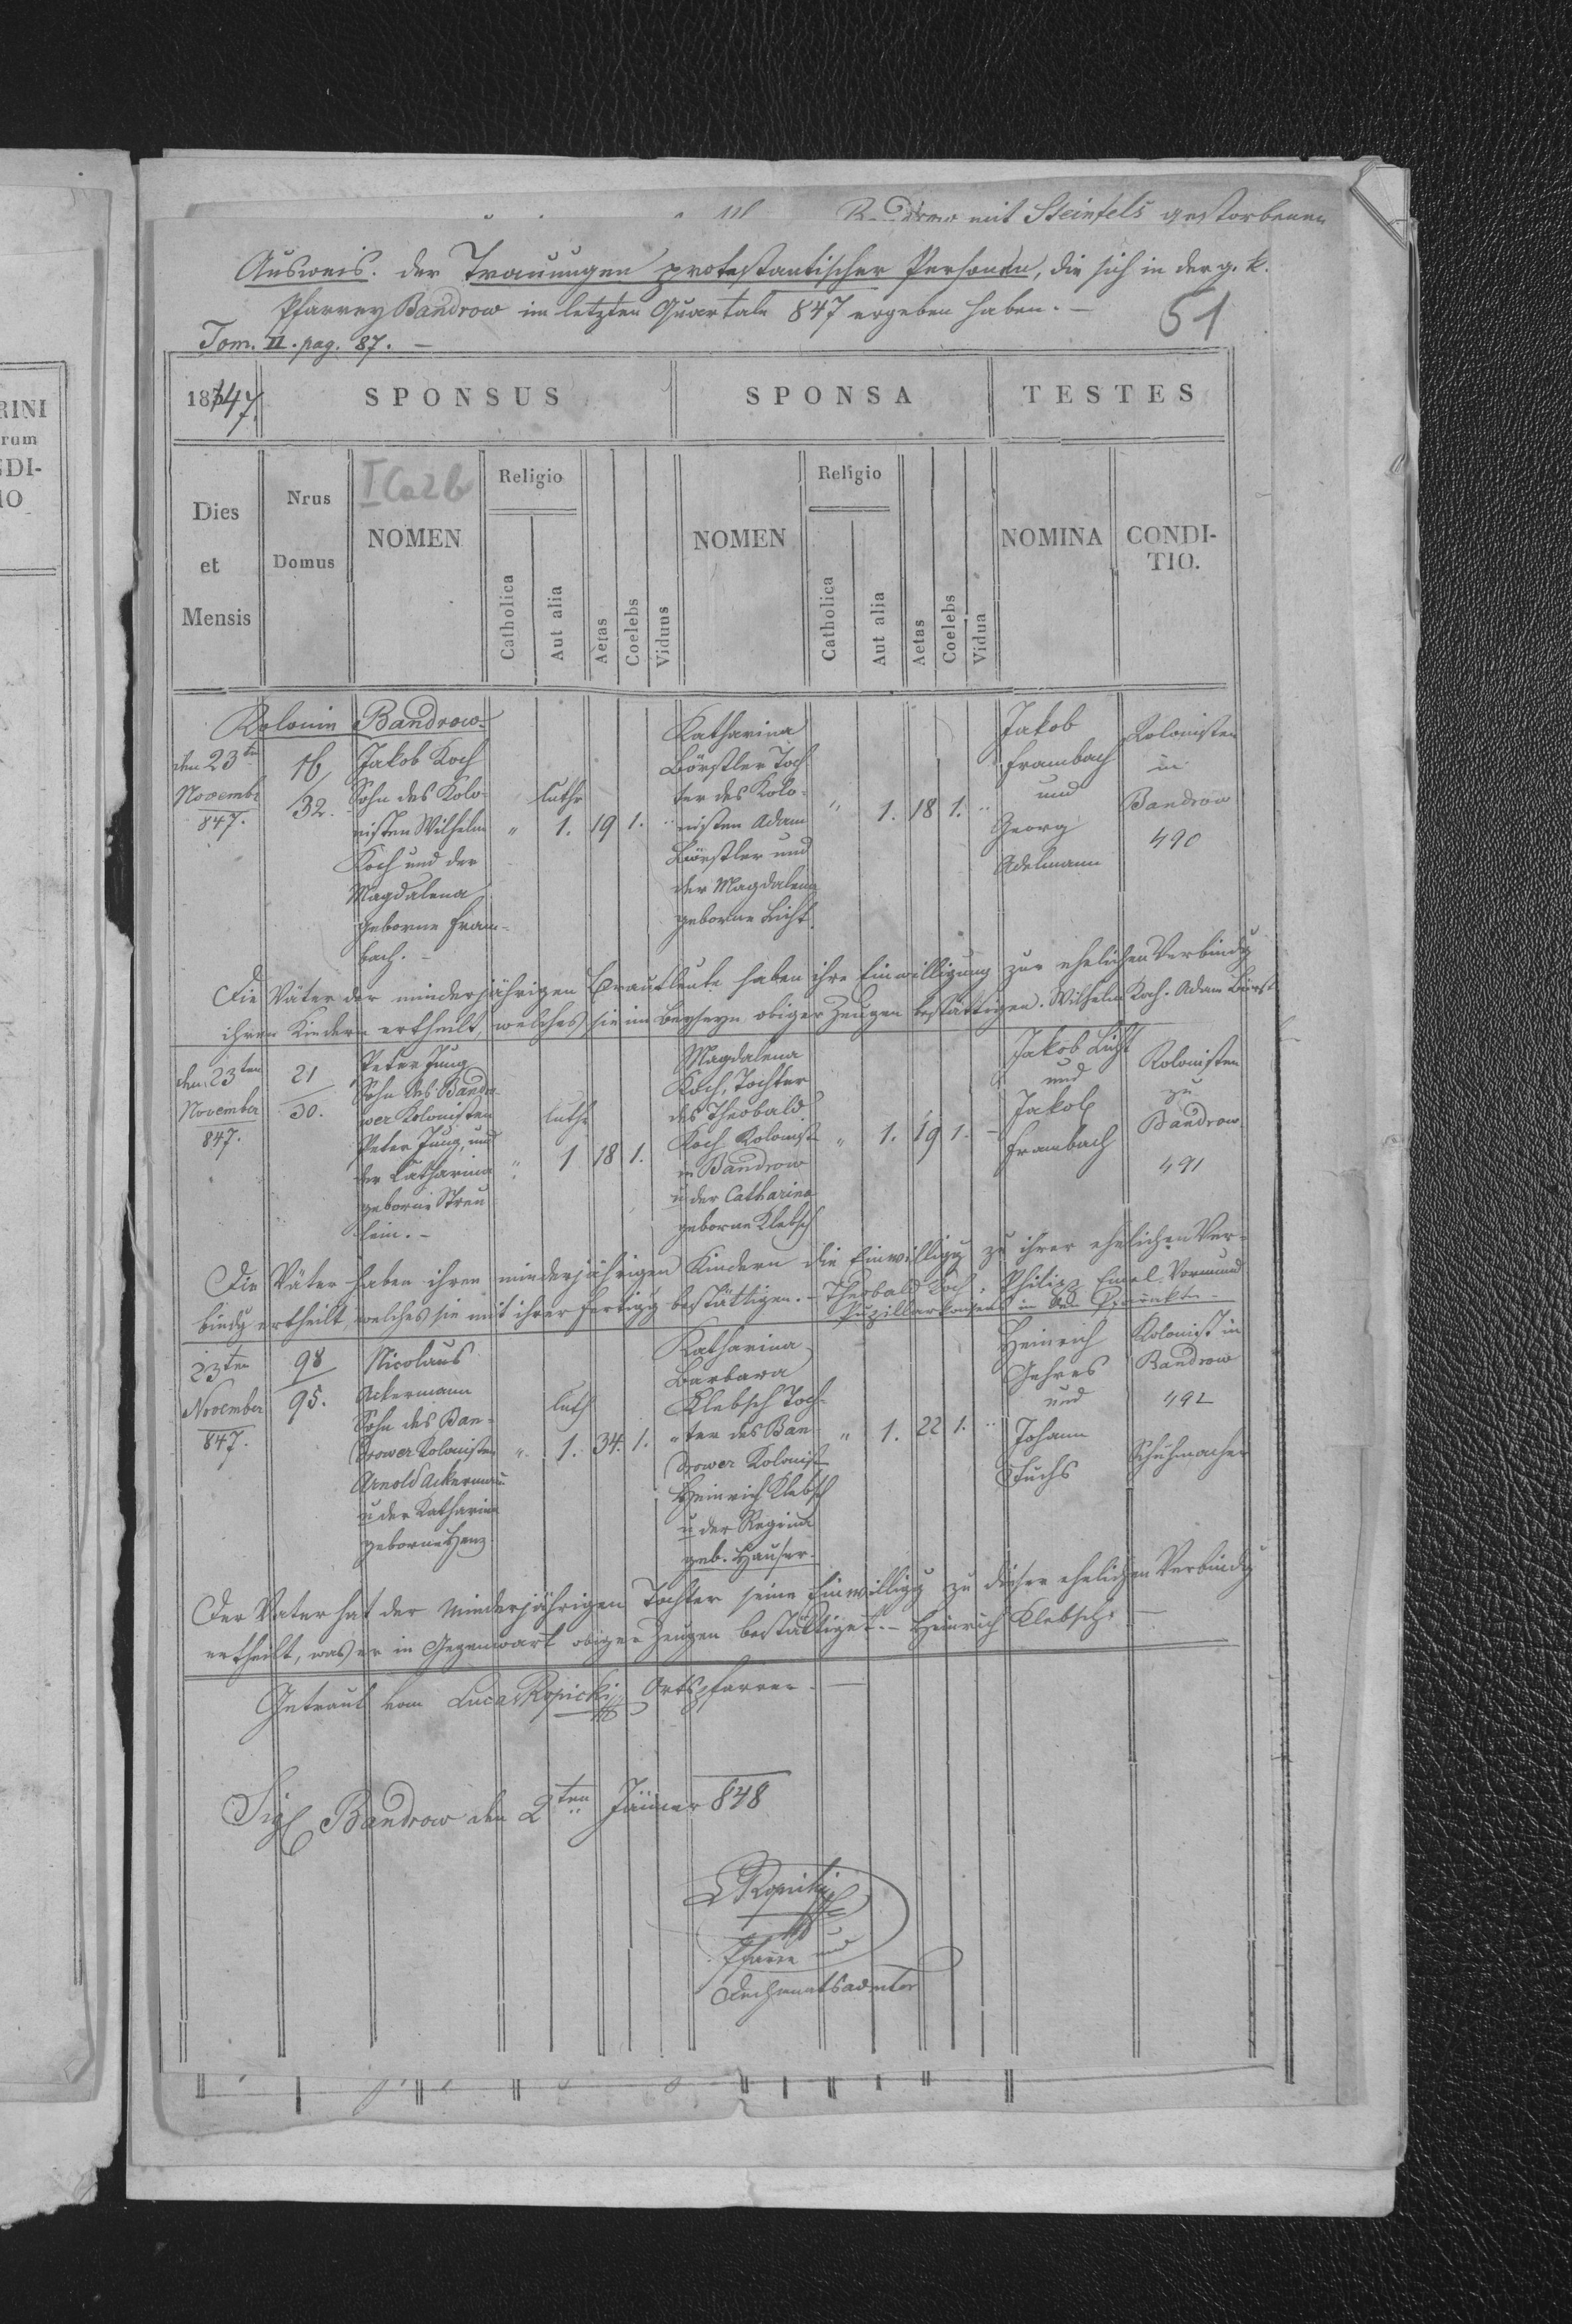 mit Steinfels gestorbenen
Ausweis. der Trauungen protestantischer Personen, die sich in der g. k.
Pfarrey Bandrow im letzten Quartale 847 ergeben haben. –
51
Tom. II. pag. 87. –
1847.
SPONSUS
SPONSA
TESTES
Dies
et
Mensis
Nrus
Domus
NOMEN
Religio
Catholica
Aut alia
Aetas
Coelebs
Viduus
NOMEN
Religio
Catholica
Aut alia
Aetas
Coelebs
Vidua
NOMINA
CONDI-
TIO.
Kolonie Bandrow
den 23ten
Novembr
847.
16
32.
Jakob Koch
Sohn des Kolo-
nisten Wilhelm
Koch und der
Magdalena
geborne Fram-
bach. –
luthr
" 1. 19 1. "
Katharina
Börstler Toch
ter des Kolo-
nisten Adam
Börstler und
der Magdalena
geborne Licht
" 1. 18 1. "
Jakob
Frambach
und
Georg
Adelmann
Kolonisten
in
Bandrow
490
Die Väter der minderjährigen Brautleute haben ihre Einwilligung zur ehelichen Verbindg
ihren Kindern ertheilt, welches sie im Beyseyn obiger Zeugen bestättigen. Wilhelm Koch. Adam Börst
den 23ten
November
847.
21
30.
Peter Jung
Sohn des Bandro
wer Kolonisten
Peter Jung, und
der Catharina
geborne Streu
lein. –
luthr
" 1 18 1.
Magdalena
Koch, Tochter
des Theobald
Koch Kolonist
in Bandrow
u der Catharina
geborne Klebsch
" 1. 19 1. –
Jakob Licht
und
Jakob
Frambach
Kolonisten
zu
Bandrow
491
Die Väter haben ihren minderjährigen Kindern die Einwilligg zu ihrer ehelichen Ver-
bindg ertheilt, welches sie mit ihrer Fertigg bestättigen. – Theobald Koch. Philipp Emel Vormund
Pupillarkonsens in
23ten
November
847.
98
95.
Nicolaus
Ackermann
Sohn des Ban-
drower Kolonisten
Arnold Ackermann
u der Katharina
geborne Henz
luth
" 1. 34. 1. "
Katharina
Barbara
Klebsch Toch-
ter des Ban
drower Kolonist
Heinrich Klebsch
u der Regina
geb. Hauser.
" 1. 22 1. "
Heinrich
Gehres
und
Johann
Fuchs
Kolonist in
Bandrow
492
Schuhmacher
Der Vater hat der minderjährigen Tochter seine Einwilligg zu dieser ehelichen Verbindg
ertheilt, was er in Gegenwart obiger Zeugen bestättiget. – Heinrich Klebsch. –
Getraut vom Lucas Ropicki Ortspfarrer. –
Sigl Bandrow den 2ten Jänner 848
L Ropicki
Pfarrer und
RINI
rum
NDI-
IO